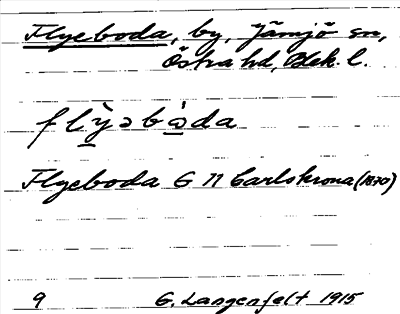 Flyeboda, by, Jämjö sn,
Östra hd, Blek. l.
flỳ̠əbå̠̀da
Flyeboda G N Carlskrona (1870)
9 G. Langenfelt 1915